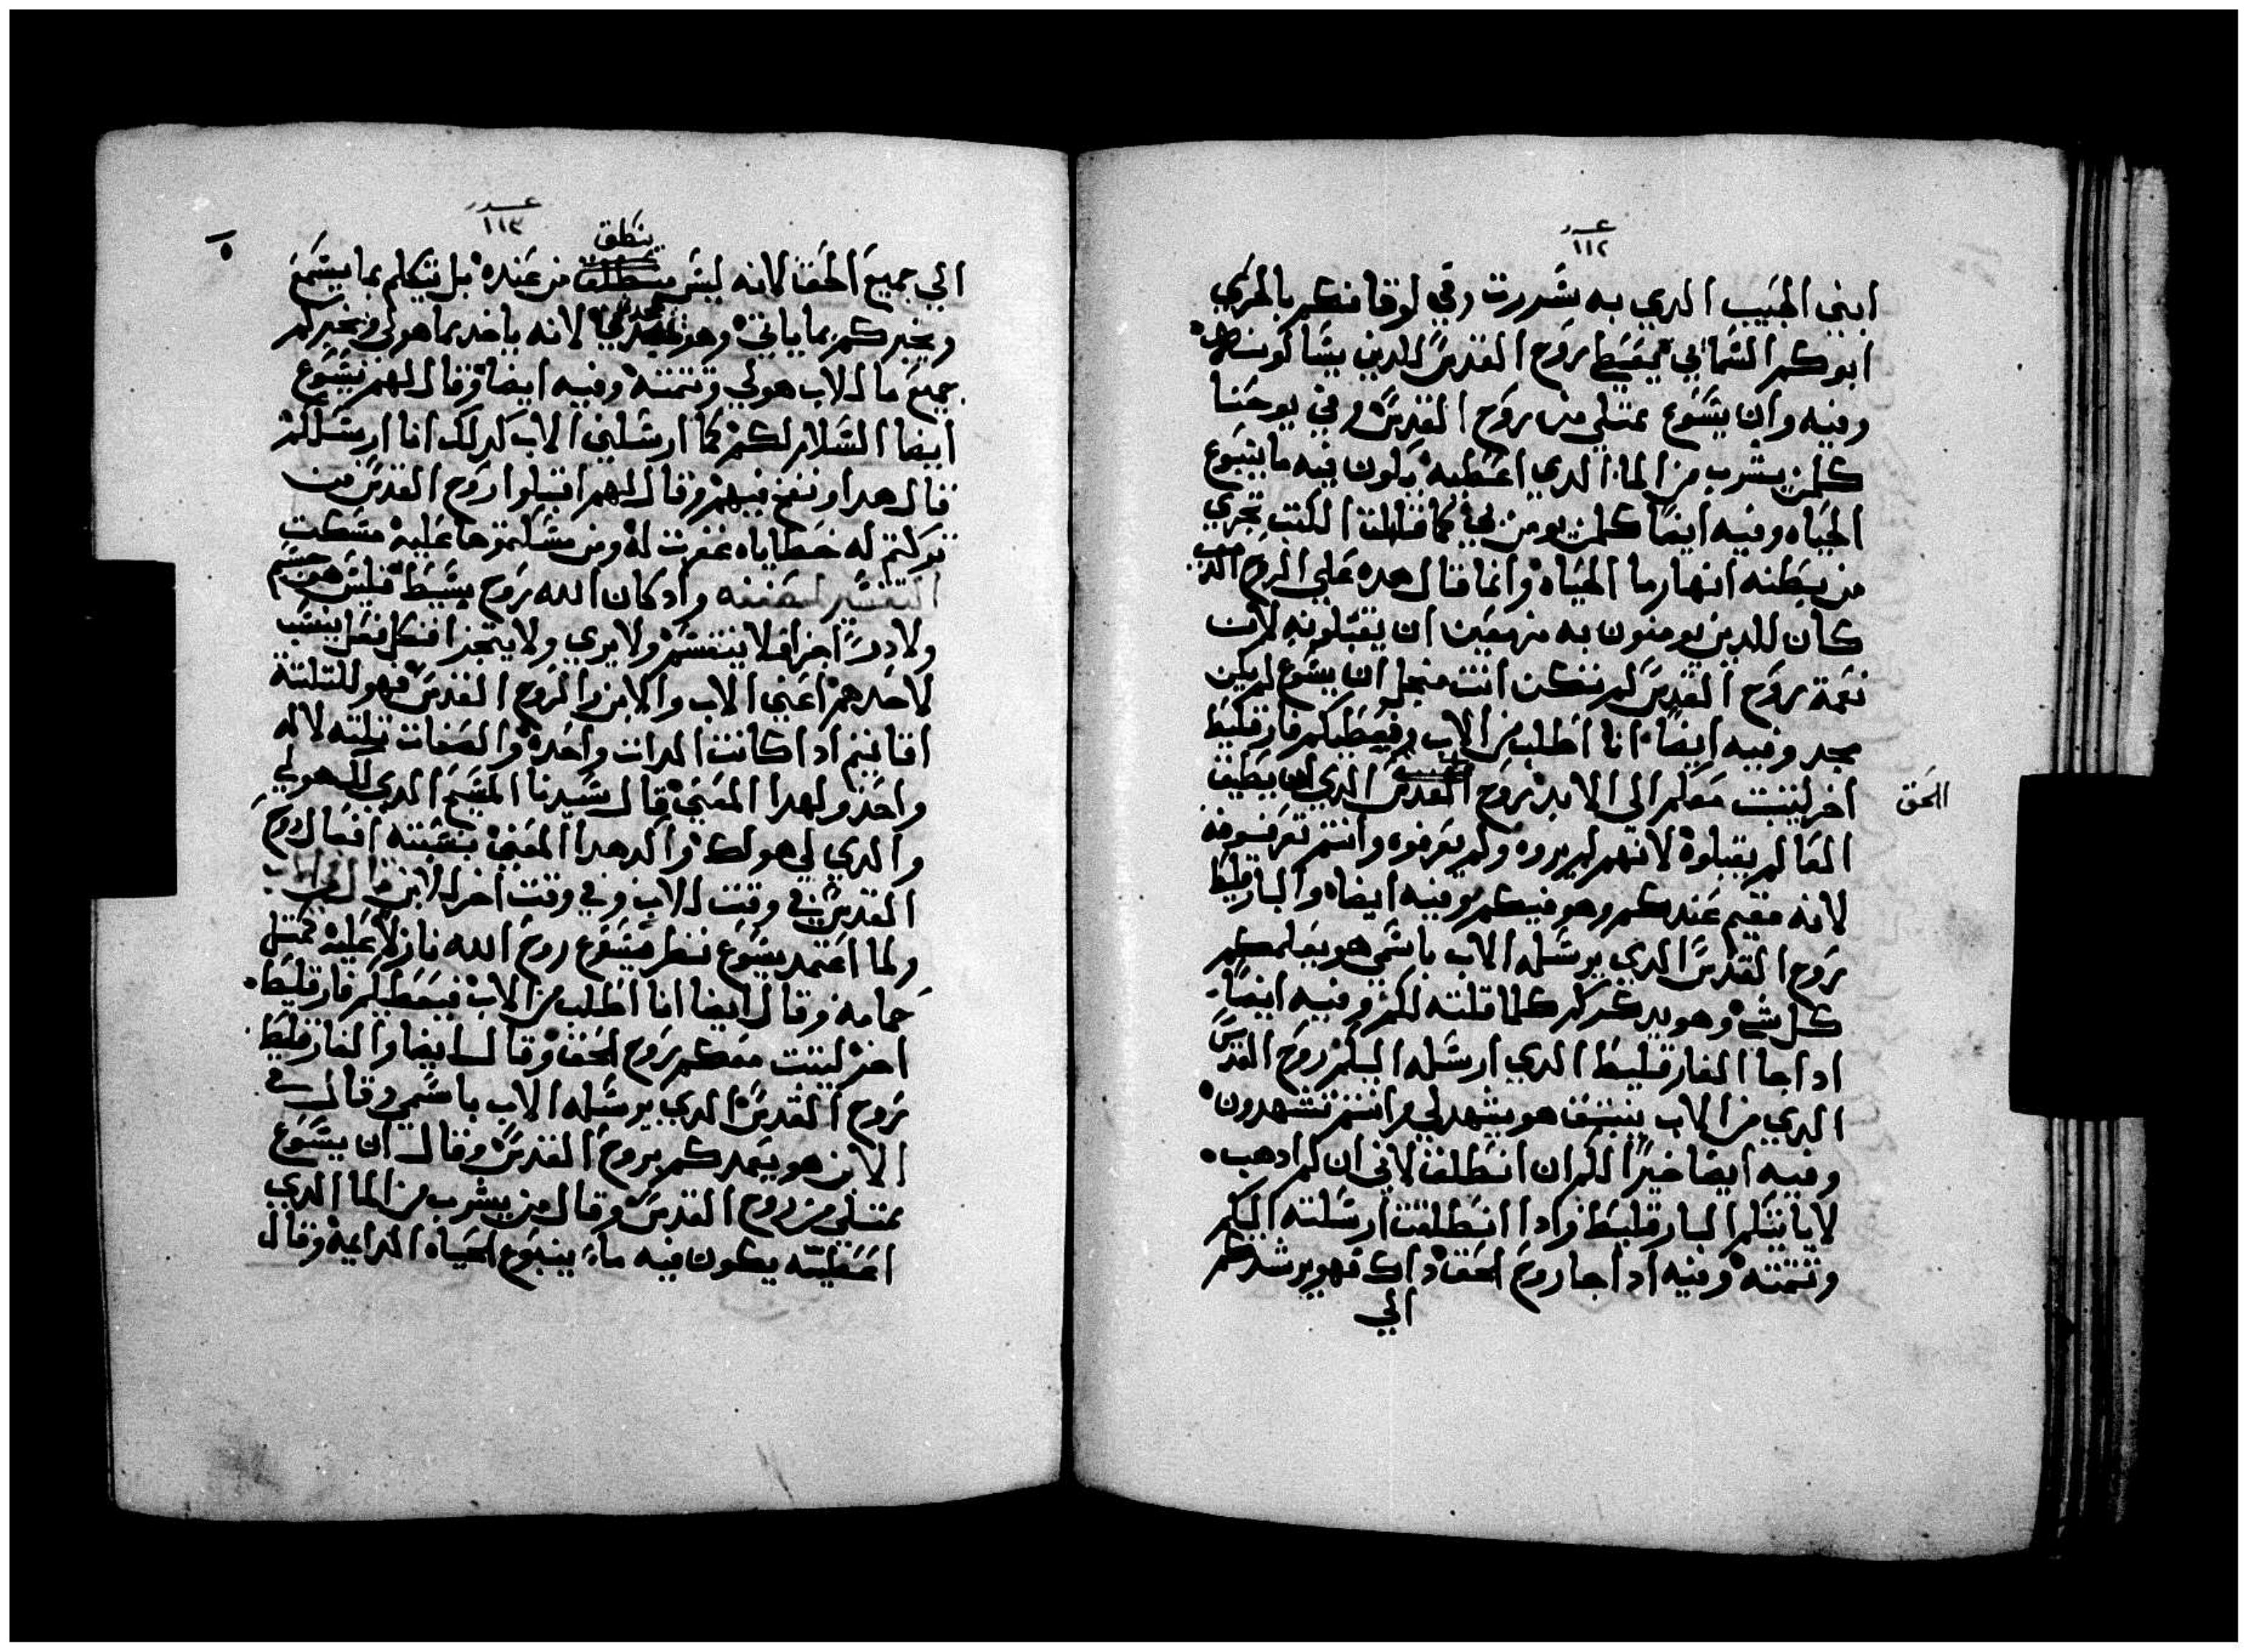 عدد
١١٢
ابني الحبيب الدي به سررت وفي لوقا فكم بالحري
ابوكم السمائي يعطي روح القدس للدين يسالونه
وفيه وان يسوع ممتلي من روح القدس وفي يوحنا
كلمن يشرب من الما الدي اعطيه يكون فيه ما ينبوع
الحياه وفيه ايضا كلمن يومن بي كما قالت الكتب تجري
من بطنه انهار ما الحياه وانما قال هده علي الروح
كان للدين يومنون به مزمعين ان يقبلونه لان
نعمة روح القدس لم تكن اتت منجل ان يسوع لم يكن
مجد وفيه ايضا انا اطلب من الاب فيعطيكم فارقليط
اخر ليتبت معكم الى الابد روح القدس الدي لن يطيق
الحق
العالم يقبلوه لانهم لم يروه ولم يعرفوه وانتم تعرفونه
لانه مقيم عندكم وهو فيكم وفيه ايضا والبارقليط
روح القدس الدي يرسله الاب باسمي هو يعلمكم
كل شي وهو يدكركم كلما قلته لكم وفيه ايضا
اداجا الفارقليط الدي ارسله اليكم روح القدس
الدي من الاب ينبتق هو يشهد لي وانتم تشهدون
وفيه ايضا خيرا لكم ان انطلق لاني ان لم ادهب
لا ياتيكم البارقليط وادا انطلقت ارسلته اليكم
وتتمته وفيه اداجا روح الحق داك فهو يرشدكم
الي
عدد
١١٣
ينطق
الي جميع الحق لانه ليس من عنده بل يتكلم بما يسمع
ويخبركم بما ياتي وهو يمجدني لانه ياخد مما هو لي ويخبركم
جميع ما للاب هو لي وتتمته وفيه ايضا وقال لهم يسوع
ايضا السلام لكم كما ارسلني الاب كدلك انا ارسلكم
قال هدا ونفخ فيهم وقال لهم اقبلوا روح القدس من
تركتم له خطاياه غفرت له ومن مسكتموها عليه مسكت
التفسير وادكان الله روح بسيط فليس هو جسم
ولا دو اجزا فلا ينقسم ولا يري ولا يتجزا فكل فعل ينسب
لاحدهم اعني الاب والابن والروح القدس فهو للتلتة
اقانيم ادا كانت الدات واحده والصفات تلته لاله
واحد ولهدا المعني قال سيدنا المسيح الدي لك هو لي
والدي لي هو لك واكد هدا المعني بنسبته افعال روح
القدس في وقت للاب وفي وقت اخر للابن
ولما اعتمد يسوع نظر يسوع روح الله نازلا عليه كمتل
حمامه وقال ايضا انا اطلب من الاب فيعطيكم فارقليط
اخر ليتبت معكم روح الحق وقال ايضا والفارقليط
روح القدس الدي يرسله الاب باسمي وقال في
الابن هو يعمدكم بروح القدس وقال ان يسوع
ممتلي من روح القدس وقال من يشرب من الما الدي
اعطيته يكون فيه ماء ينبوع الحياه الدايمة وقال